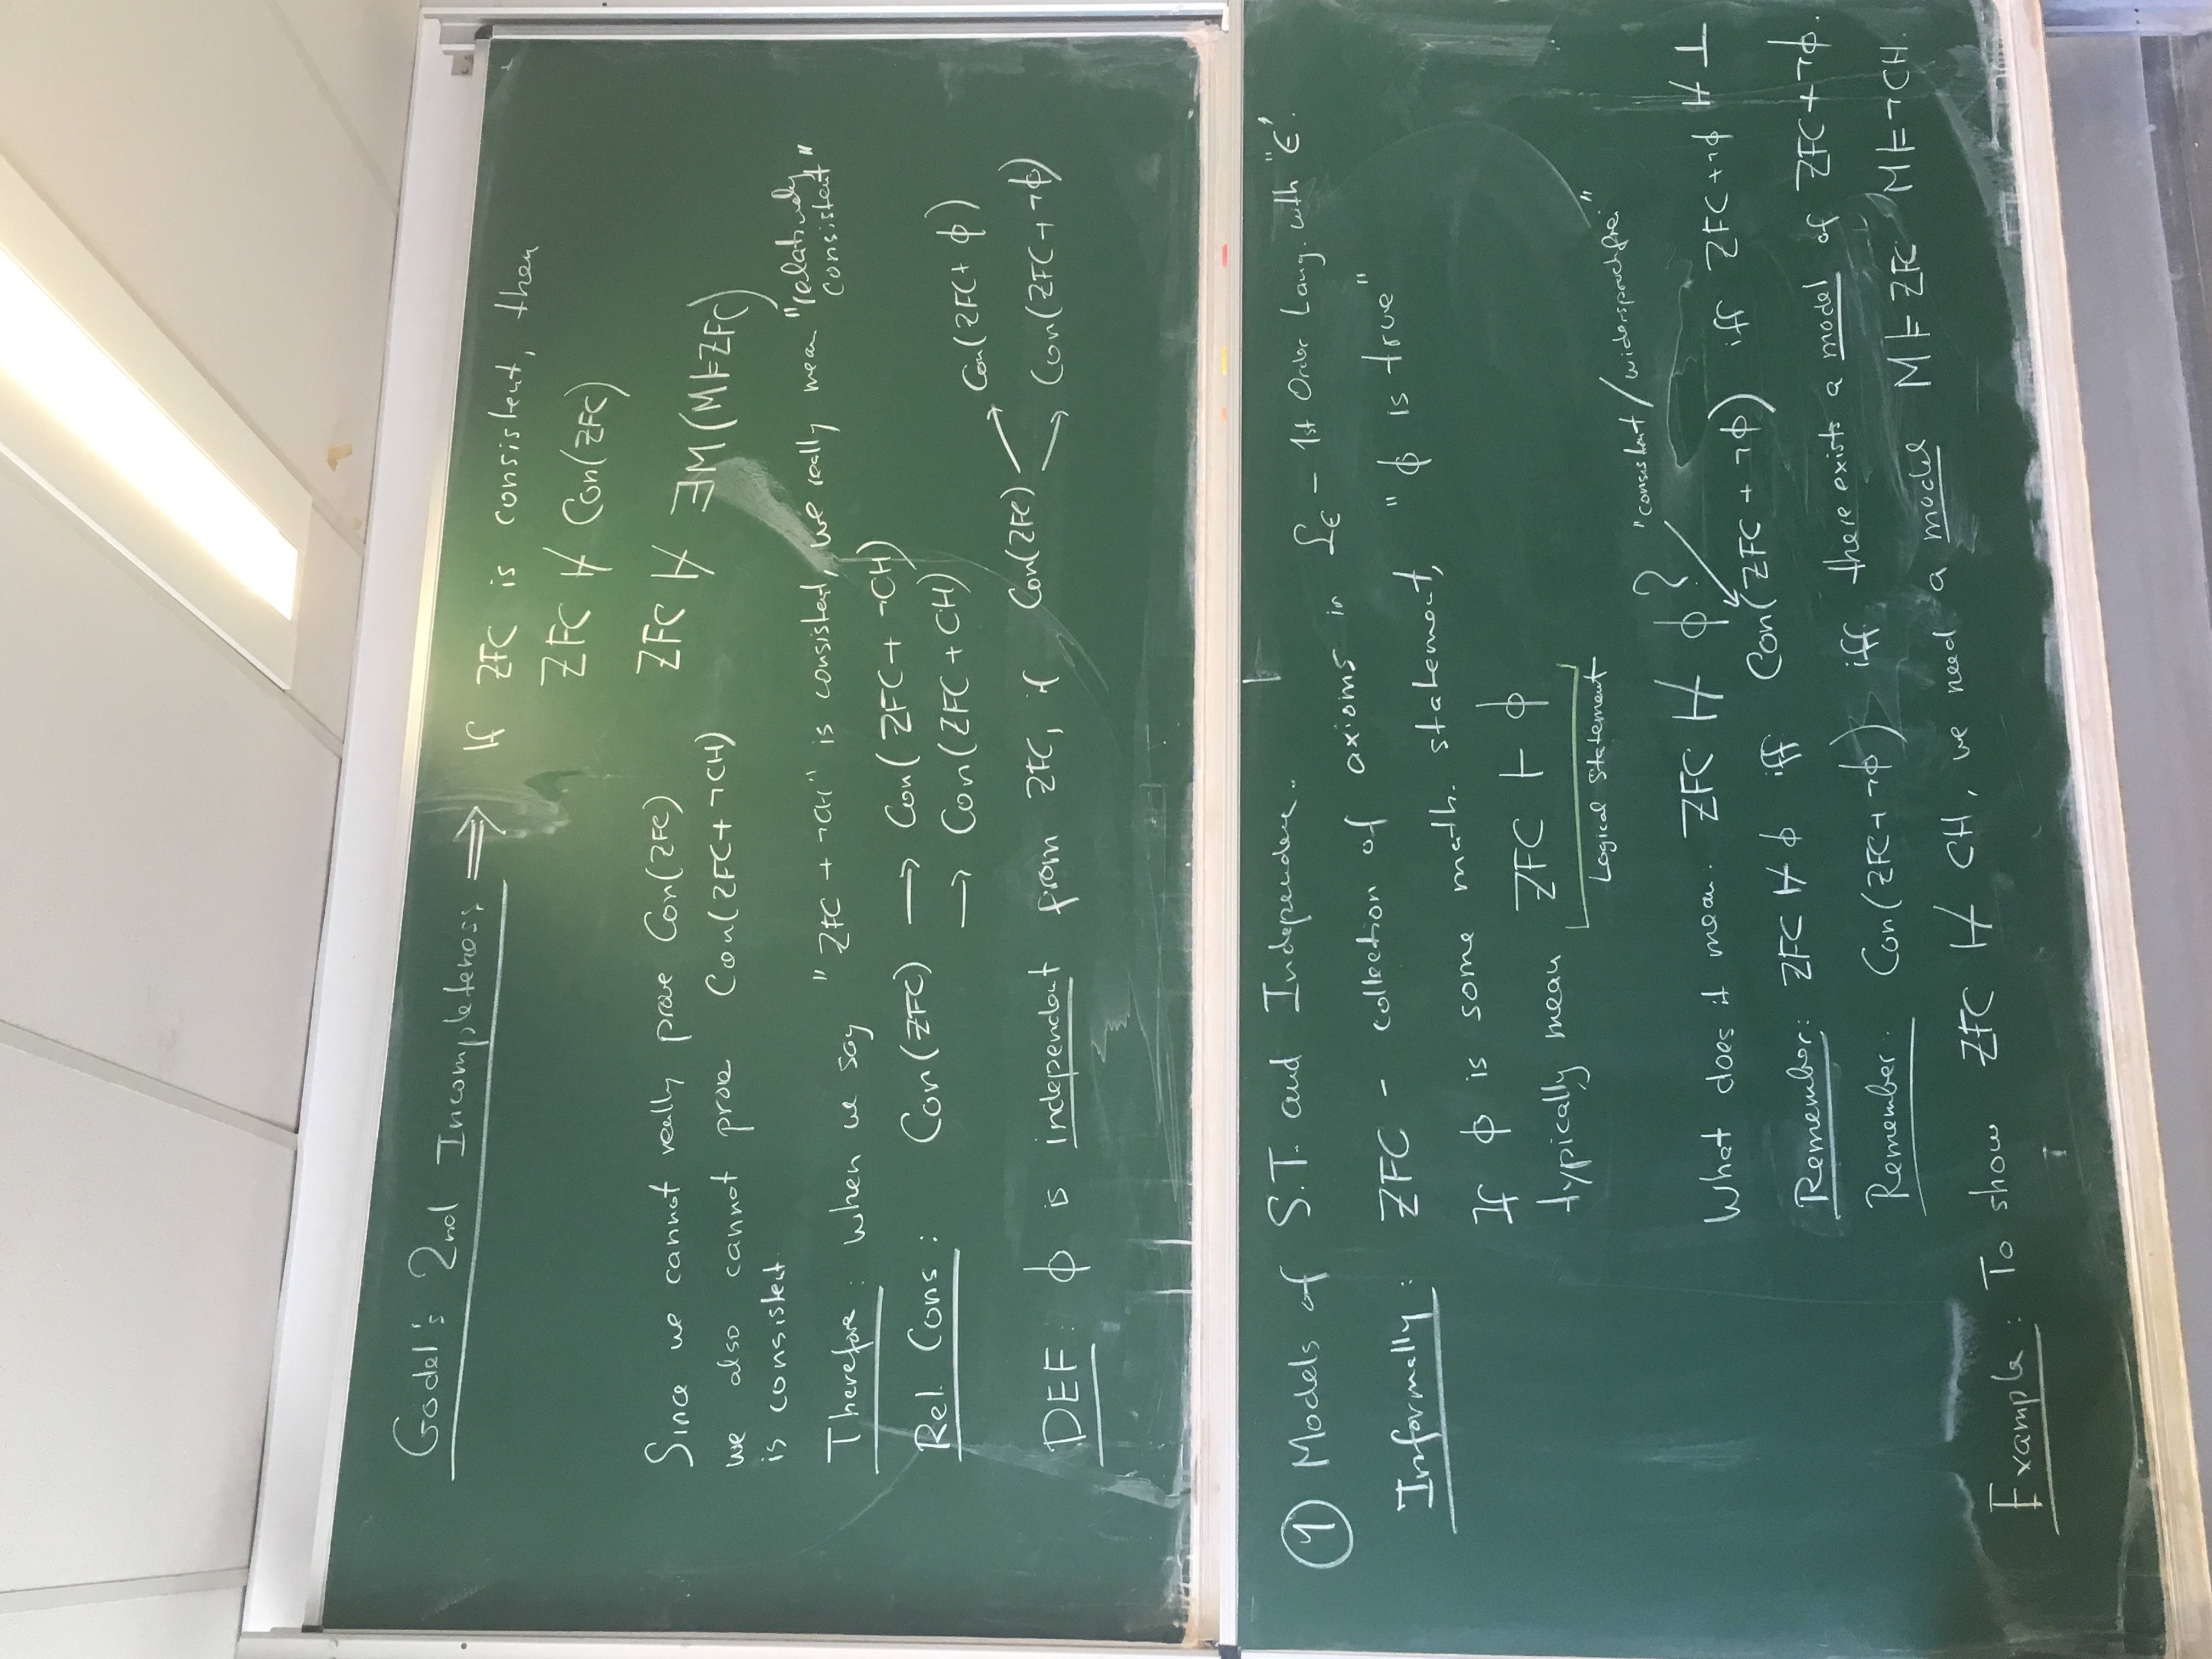 Gödel's 2nd Incompleteness ⟹ If ZFC is consistent, then
ZFC ⊬ Con(ZFC)
ZFC ⊬ ∃M(M⊨ZFC)
Since we cannot really prove Con(ZFC)
we also cannot prove Con(ZFC+¬CH)
is consistent.
Therefore: when we say "ZFC+¬CH" is consistent, we really mean "relatively
consistent"
Rel. Cons: Con(ZFC) → Con(ZFC+¬CH)
→ Con(ZFC+CH)
DEF: ϕ is independent from ZFC, if Con(ZFC) → Con(ZFC+ϕ)
→ Con(ZFC+¬ϕ)
① Models of S.T. and Independence.
Informally: ZFC - collection of axioms in L∈ - 1st Order Lang. with "∈".
If ϕ is some math. statement, "ϕ is true"
typically mean ZFC ⊢ ϕ
Logical Statement
What does it mean: ZFC ⊬ ϕ? "consistent/widerspruchfrei"
Remember: ZFC ⊬ ϕ iff Con(ZFC+¬ϕ) iff ZFC+¬ϕ ⊬ ⊥
Remember: Con(ZFC+¬ϕ) iff there exists a model of ZFC+¬ϕ.
Example: To show ZFC ⊬ CH, we need a model M⊨ZFC M⊨¬CH.